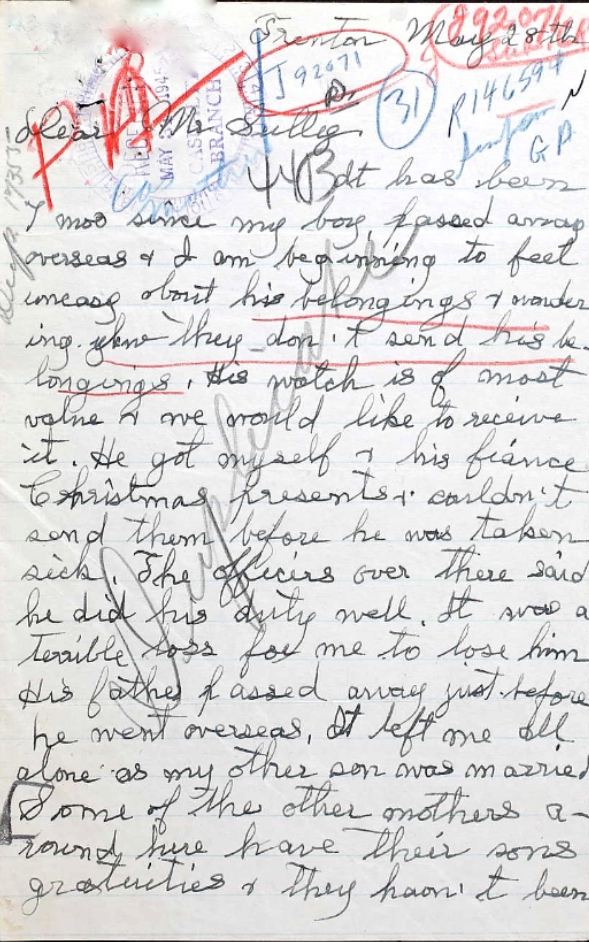 Trenton May 28th
J92071
31
R146594
Dear Mr. Sully,
It has been
7 mos since my boy passed away
overseas & I am beginning to feel
uneasy about his belongings & wonder
ing why they don't send his be-
longings. His watch is of most
value & we would like to receive
it. He got myself & his fiance
Christmas presents & couldn't
send them before he was taken
sick. The officers over there said
he did his duty well. It was a
terrible loss for me to lose him
His father passed away just before
he went overseas. It left me all
alone as my other son was married
Some of the other mothers a-
round here have their sons
gratuities & they haven't been
Duplicate